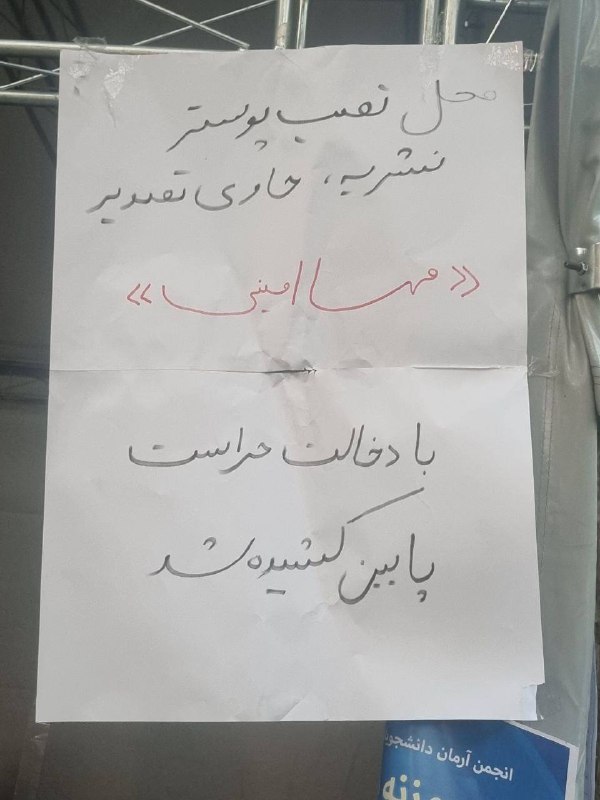 محل نصب پوستر
نشریه، حاوی تصویر
«مهسا امینی»
با دخالت حراست
پایین کشیده شد
انجمن آرمان دانشجویی